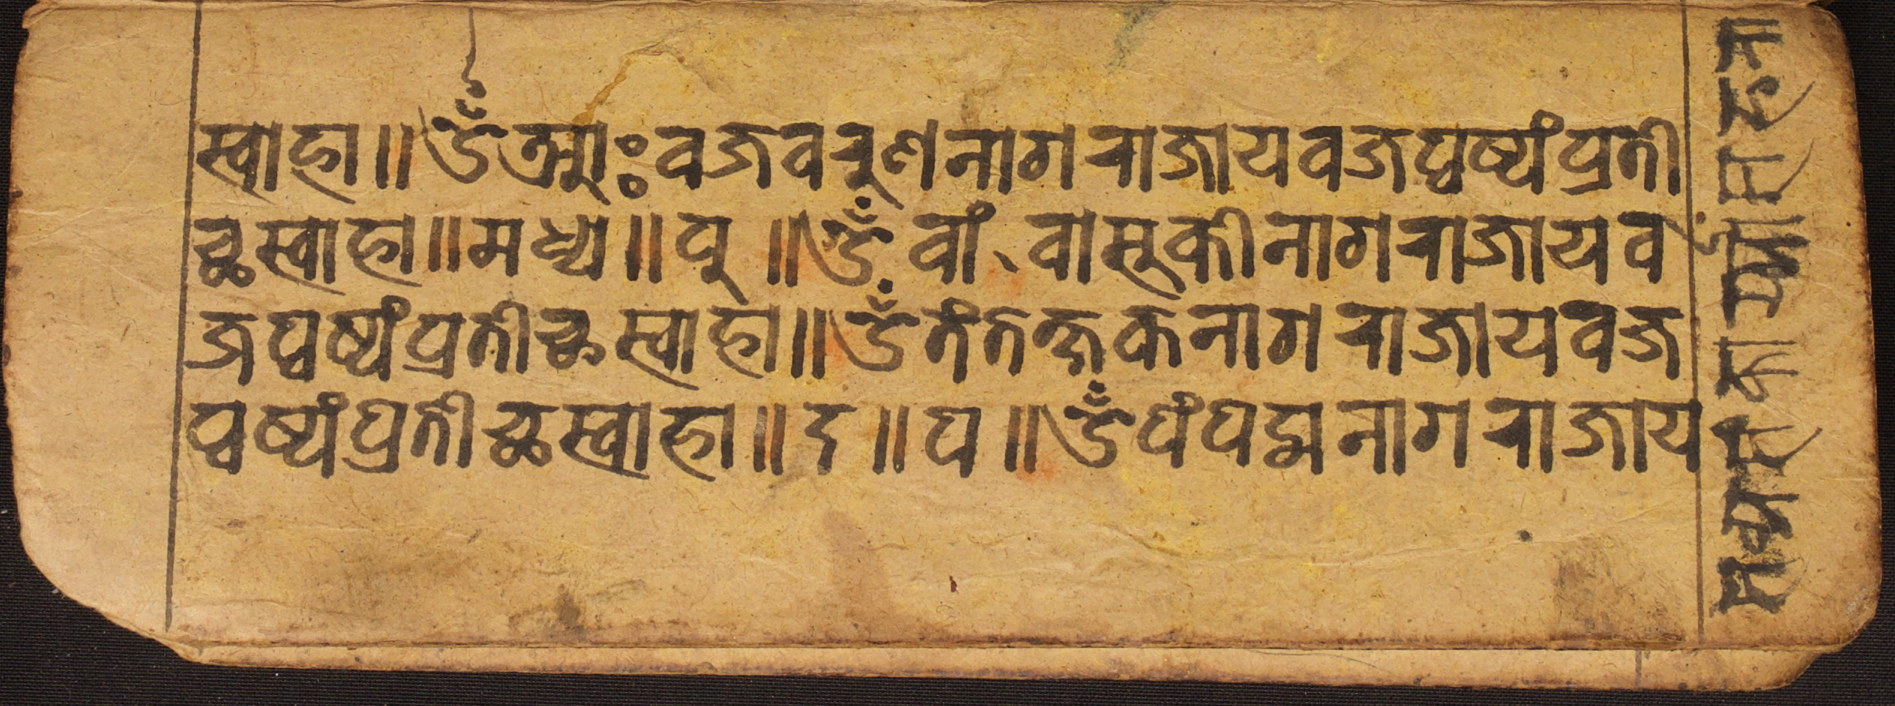 स्वाहा॥ ॐ आः वज्र वरुण नागराजाय वज्रपुष्पं प्रती
च्छ स्वाहा॥ मध्य॥ पु ॥ ॐ वां वासूकी नागराजाय व
ज्रपुष्पं प्रतीच्छ स्वाहा॥ ॐ तं तक्षक नागराजाय वज्र
पुष्पं प्रतीच्छ स्वाहा॥ द॥ प॥ ॐ पं पद्म नागराजाय